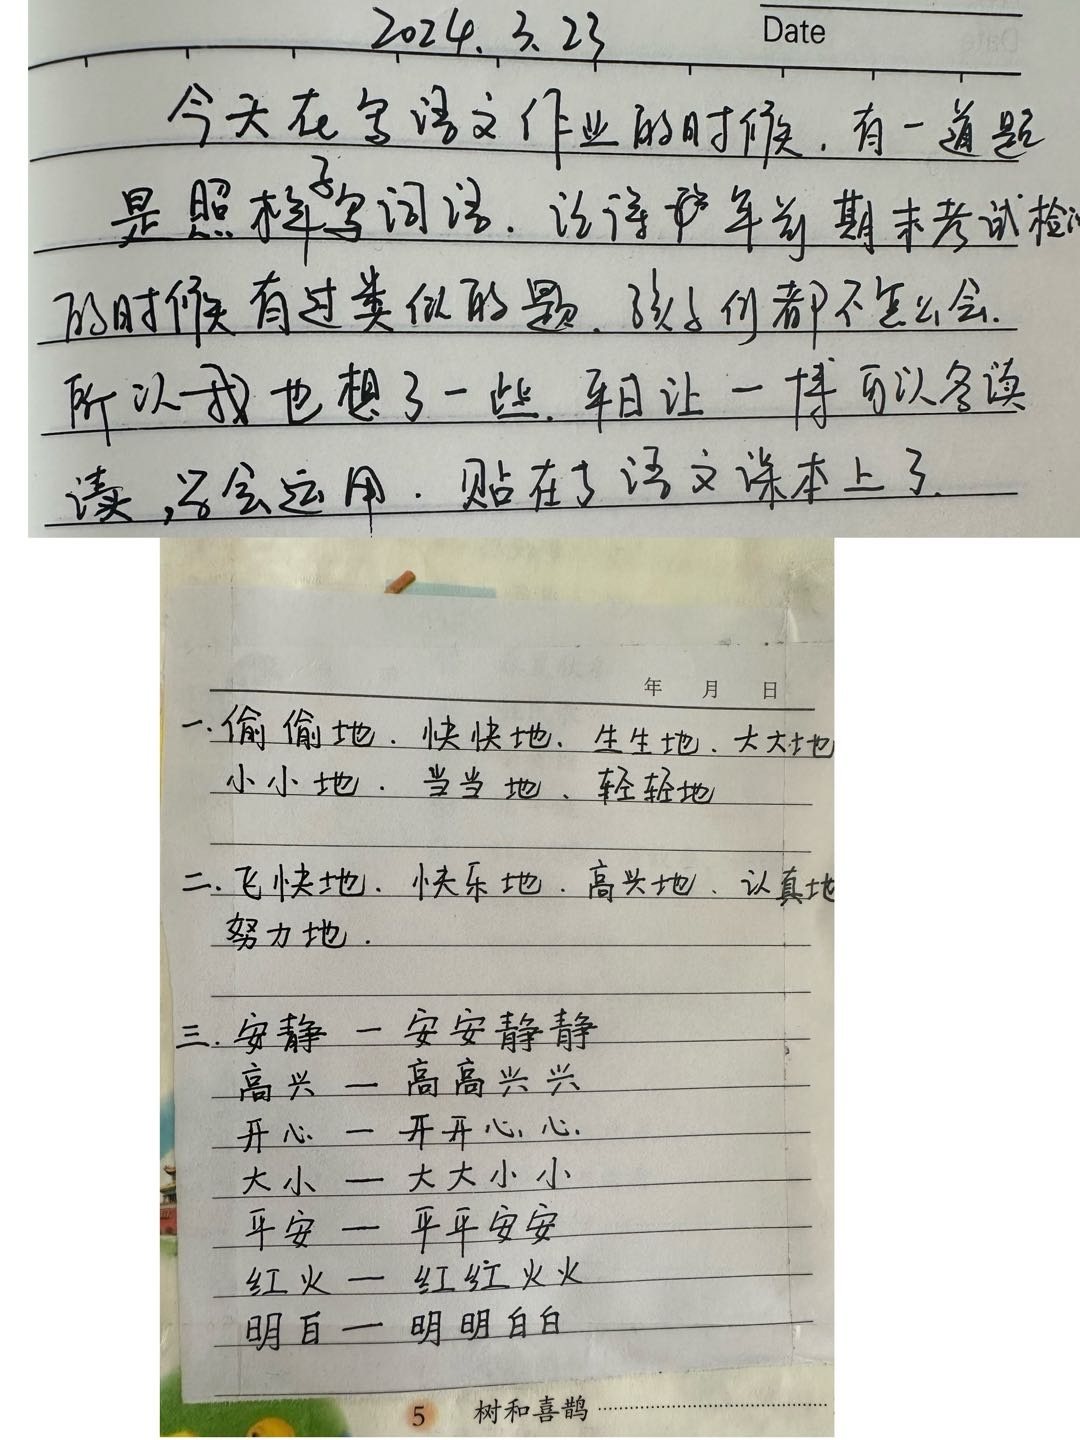 2024.3.23
Date
今天在写语文作业的时候.有一道题
是照样子写词语.记得年前期末考试检
的时候有过类似的题.孩子们都不怎么会.
所以我也想了一些.平日让一博可以多读
读,学会运用.贴在了语文课本上了.
年 月 日
一.偷偷地.快快地.生生地.大大地
小小地.当当地.轻轻地
二.飞快地.快乐地.高兴地.认真地
努力地.
三.安静—安安静静
高兴—高高兴兴
开心—开开心心.
大小—大大小小
平安—平平安安
红火—红红火火
明白—明明白白
5 树和喜鹊